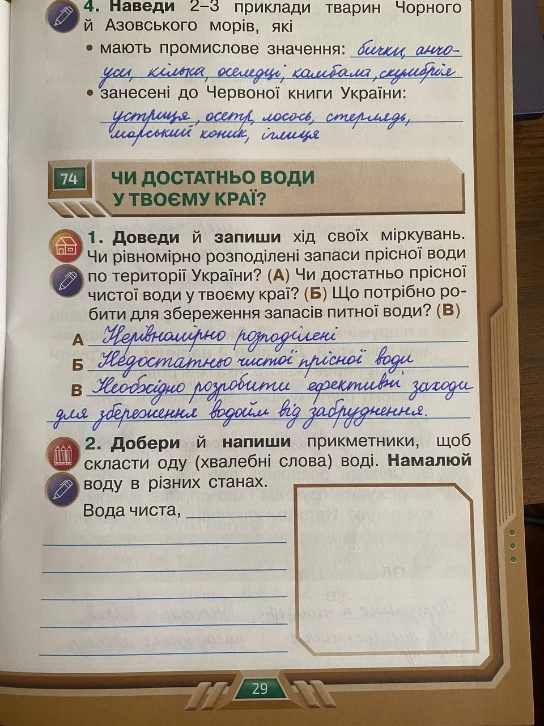 4. Наведи 2–3 приклади тварин Чорного
й Азовського морів, які
• мають промислове значення: бички, анчо-
уси, кілька, оселедці, камбала, скумбрія
• занесені до Червоної книги України:
устриця, осетр, лосось, стерлядь,
морський коник, іглиця
74 ЧИ ДОСТАТНЬО ВОДИ
У ТВОЄМУ КРАЇ?
1. Доведи й запиши хід своїх міркувань.
Чи рівномірно розподілені запаси прісної води
по території України? (А) Чи достатньо прісної
чистої води у твоєму краї? (Б) Що потрібно ро-
бити для збереження запасів питної води? (В)
А Нерівномірно розподілені
Б Недостатньо чистої прісної води
В Необхідно розробити ефективні заходи
для збереження водойм від забруднення.
2. Добери й напиши прикметники, щоб
скласти оду (хвалебні слова) воді. Намалюй
воду в різних станах.
Вода чиста,
29